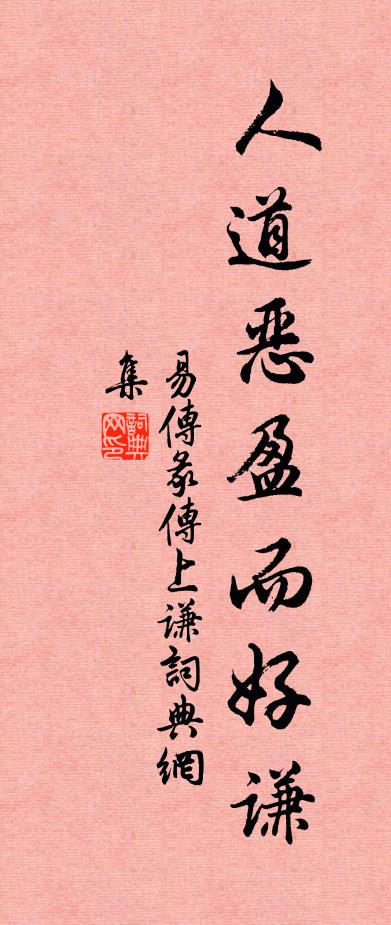 人道恶盈而好谦
易傳彖傳上谦詞典網
集
詞典
网印